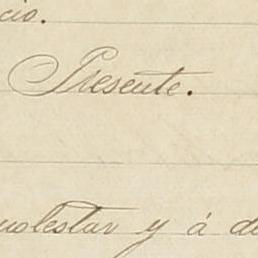 cio.
Presente.
molestar y á de